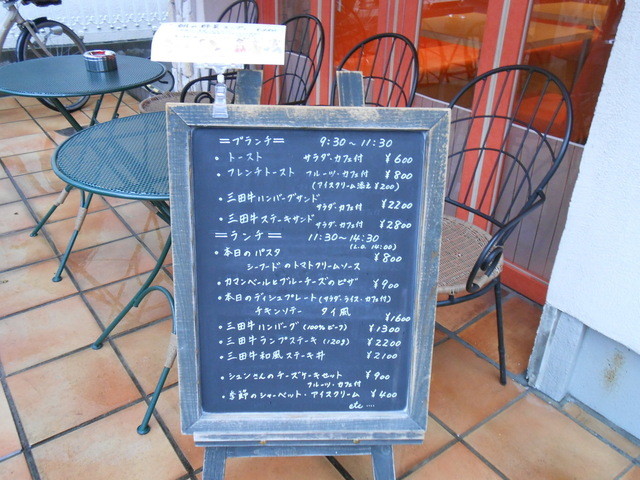 ＝ブランチ＝ 9:30～11:30
・トースト サラダ・カフェ付 ¥600
・フレンチトースト フルーツ・カフェ付 ¥800
(アイスクリーム添え ¥200)
・三田牛ハンバーグサンド ¥2200
サラダ・カフェ付
・三田牛ステーキサンド
サラダ・カフェ付 ¥2800
＝ランチ＝ 11:30～14:30
(L.O. 14:00)
・本日のパスタ ¥800
シーフードのトマトクリームソース
・カマンベールとブルーチーズのピザ ¥900
・本日のディッシュプレート (サラダ・ライス・カフェ付)
チキンソテー タイ風 ¥1600
・三田牛ハンバーグ (100%ビーフ) ¥1300
・三田牛ランプステーキ (120g) ¥2200
・三田牛和風ステーキ丼 ¥2100
・シュンさんのチーズケーキセット ¥900
フルーツ・カフェ付
・季節のシャーベット・アイスクリーム ¥400
etc ....